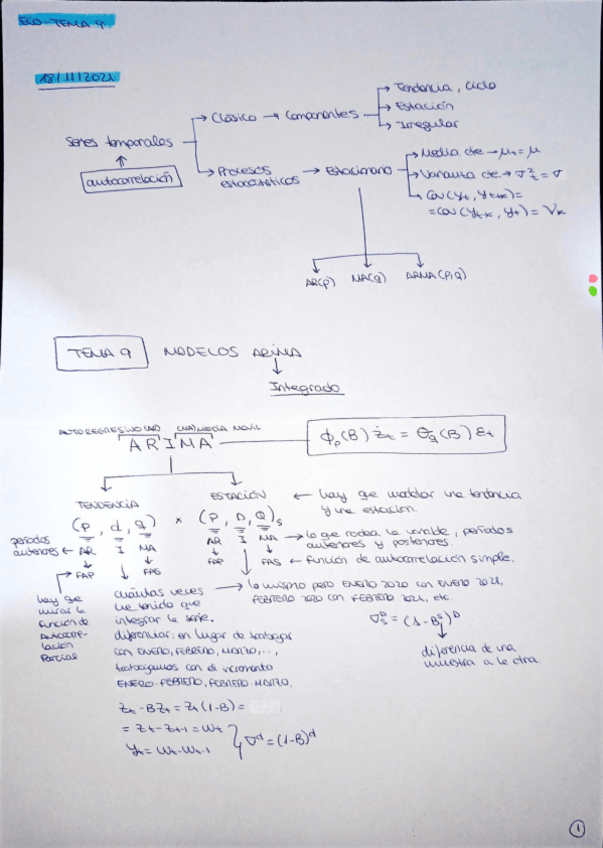 ECO-TEMA 9
18/11/2021
Series temporales
autocorrelación
Clásico → Componentes
Tendencia, ciclo
Estación
Irregular
Procesos estocásticos → Estacionario
Media cte → μt = μ
Varianza cte → σ²t = σ
Cov(yt, yt+k) =
= cov(yt-k, yt) = γk
AR(p) MA(q) ARMA(p,q)
TEMA 9 MODELOS ARIMA
Integrado
AUTOREGRESIVO(AR) (MA) MEDIA MOVIL
ARIMA
ϕp(B) żt = Θq(B) εt
TENDENCIA
ESTACIÓN
← hay que modelar una tendencia
y una estación.
(p, d, q) × (P, D, Q)s
períodos
anteriores ← AR I MA
AR I MA → lo que rodea la variable, períodos
anteriores y posteriores.
FAP FAS
FAP FAS ← función de autocorrelación simple.
hay que
mirar la
función de
Autocorre-
lación
Parcial
cuántas veces
he tenido que
integrar la serie.
diferenciar: en lugar de trabajar
con ENERO, FEBRERO, MARZO, ...,
trabajamos con el incremento
ENERO-FEBRERO, FEBRERO-MARZO.
→ lo mismo pero ENERO 2020 con ENERO 2021,
FEBRERO 2020 con FEBRERO 2021, etc.
∇sᴰ = (1-Bˢ)ᴰ
diferencia de una
muestra a la otra
zt - Bzt = zt(1-B) =
= zt - zt-1 = wt
yt = wt - wt-1
∇ᵈ = (1-B)ᵈ
1